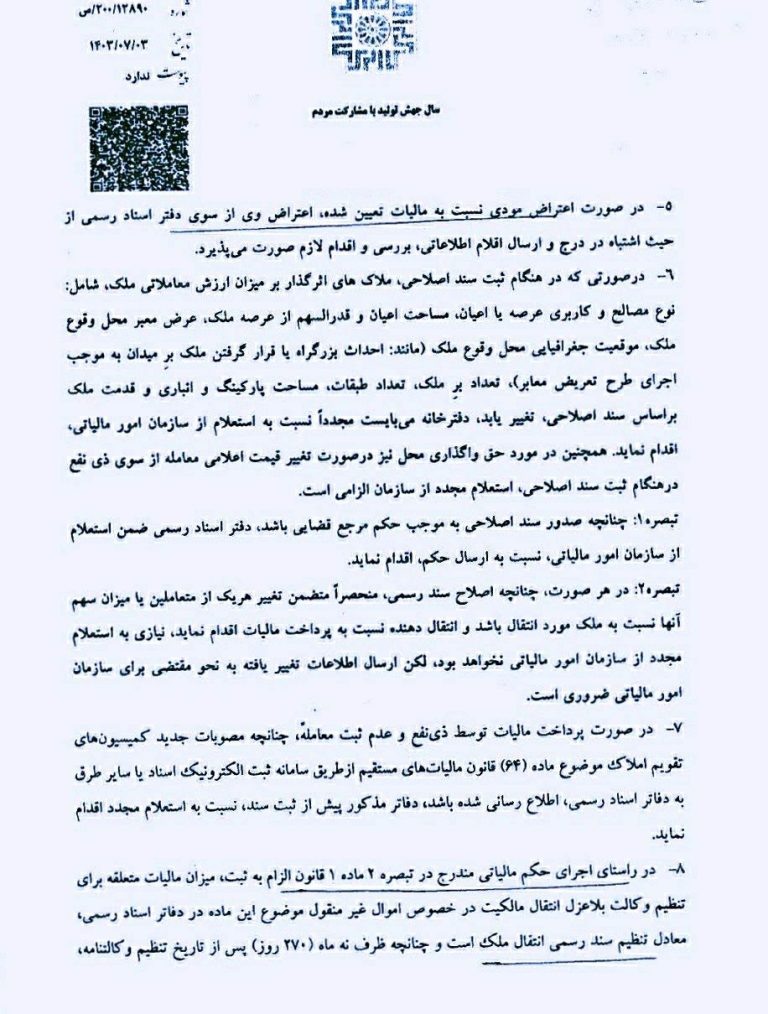 شماره ۲۰۰/۱۲۸۹۰/ص
تاریخ ۱۴۰۳/۰۷/۰۳
پیوست ندارد
سال جهش تولید با مشارکت مردم
۵- در صورت اعتراض مودی نسبت به مالیات تعیین شده، اعتراض وی از سوی دفتر اسناد رسمی از
حیث اشتباه در درج و ارسال اقلام اطلاعاتی، بررسی و اقدام لازم صورت می‌پذیرد.
۶- درصورتی که در هنگام ثبت سند اصلاحی، ملاک های اثرگذار بر میزان ارزش معاملاتی ملک، شامل:
نوع مصالح و کاربری عرصه یا اعیان، مساحت اعیان و قدرالسهم از عرصه ملک، عرض معبر محل وقوع
ملک، موقعیت جغرافیایی محل وقوع ملک (مانند: احداث بزرگراه یا قرار گرفتن ملک برِ میدان به موجب
اجرای طرح تعریض معابر)، تعداد برِ ملک، تعداد طبقات، مساحت پارکینگ و انباری و قدمت ملک
براساس سند اصلاحی، تغییر یابد، دفترخانه می‌بایست مجدداً نسبت به استعلام از سازمان امور مالیاتی،
اقدام نماید. همچنین در مورد حق واگذاری محل نیز درصورت تغییر قیمت اعلامی معامله از سوی ذی نفع
درهنگام ثبت سند اصلاحی، استعلام مجدد از سازمان الزامی است.
تبصره۱: چنانچه صدور سند اصلاحی به موجب حکم مرجع قضایی باشد، دفتر اسناد رسمی ضمن استعلام
از سازمان امور مالیاتی، نسبت به ارسال حکم، اقدام نماید.
تبصره۲: در هر صورت، چنانچه اصلاح سند رسمی، منحصراً متضمن تغییر هریک از متعاملین یا میزان سهم
آنها نسبت به ملک مورد انتقال باشد و انتقال دهنده نسبت به پرداخت مالیات اقدام نماید، نیازی به استعلام
مجدد از سازمان امور مالیاتی نخواهد بود، لکن ارسال اطلاعات تغییر یافته به نحو مقتضی برای سازمان
امور مالیاتی ضروری است.
۷- در صورت پرداخت مالیات توسط ذی‌نفع و عدم ثبت معامله، چنانچه مصوبات جدید کمیسیون‌های
تقویم املاک موضوع ماده (۶۴) قانون مالیات‌های مستقیم ازطریق سامانه ثبت الکترونیک اسناد یا سایر طرق
به دفاتر اسناد رسمی، اطلاع رسانی شده باشد، دفاتر مذکور پیش از ثبت سند، نسبت به استعلام مجدد اقدام
نماید.
۸- در راستای اجرای حکم مالیاتی مندرج در تبصره ۲ ماده ۱ قانون الزام به ثبت، میزان مالیات متعلقه برای
تنظیم وکالت بلاعزل انتقال مالکیت در خصوص اموال غیر منقول موضوع این ماده در دفاتر اسناد رسمی،
معادل تنظیم سند رسمی انتقال ملک است و چنانچه ظرف نه ماه (۲۷۰ روز) پس از تاریخ تنظیم وکالتنامه،